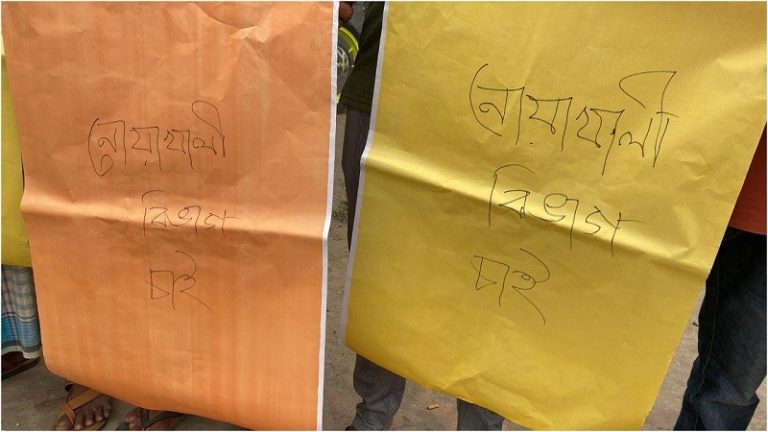 নোয়াখালী
বিভাগ
চাই
নোয়াখালী
বিভাগ
চাই